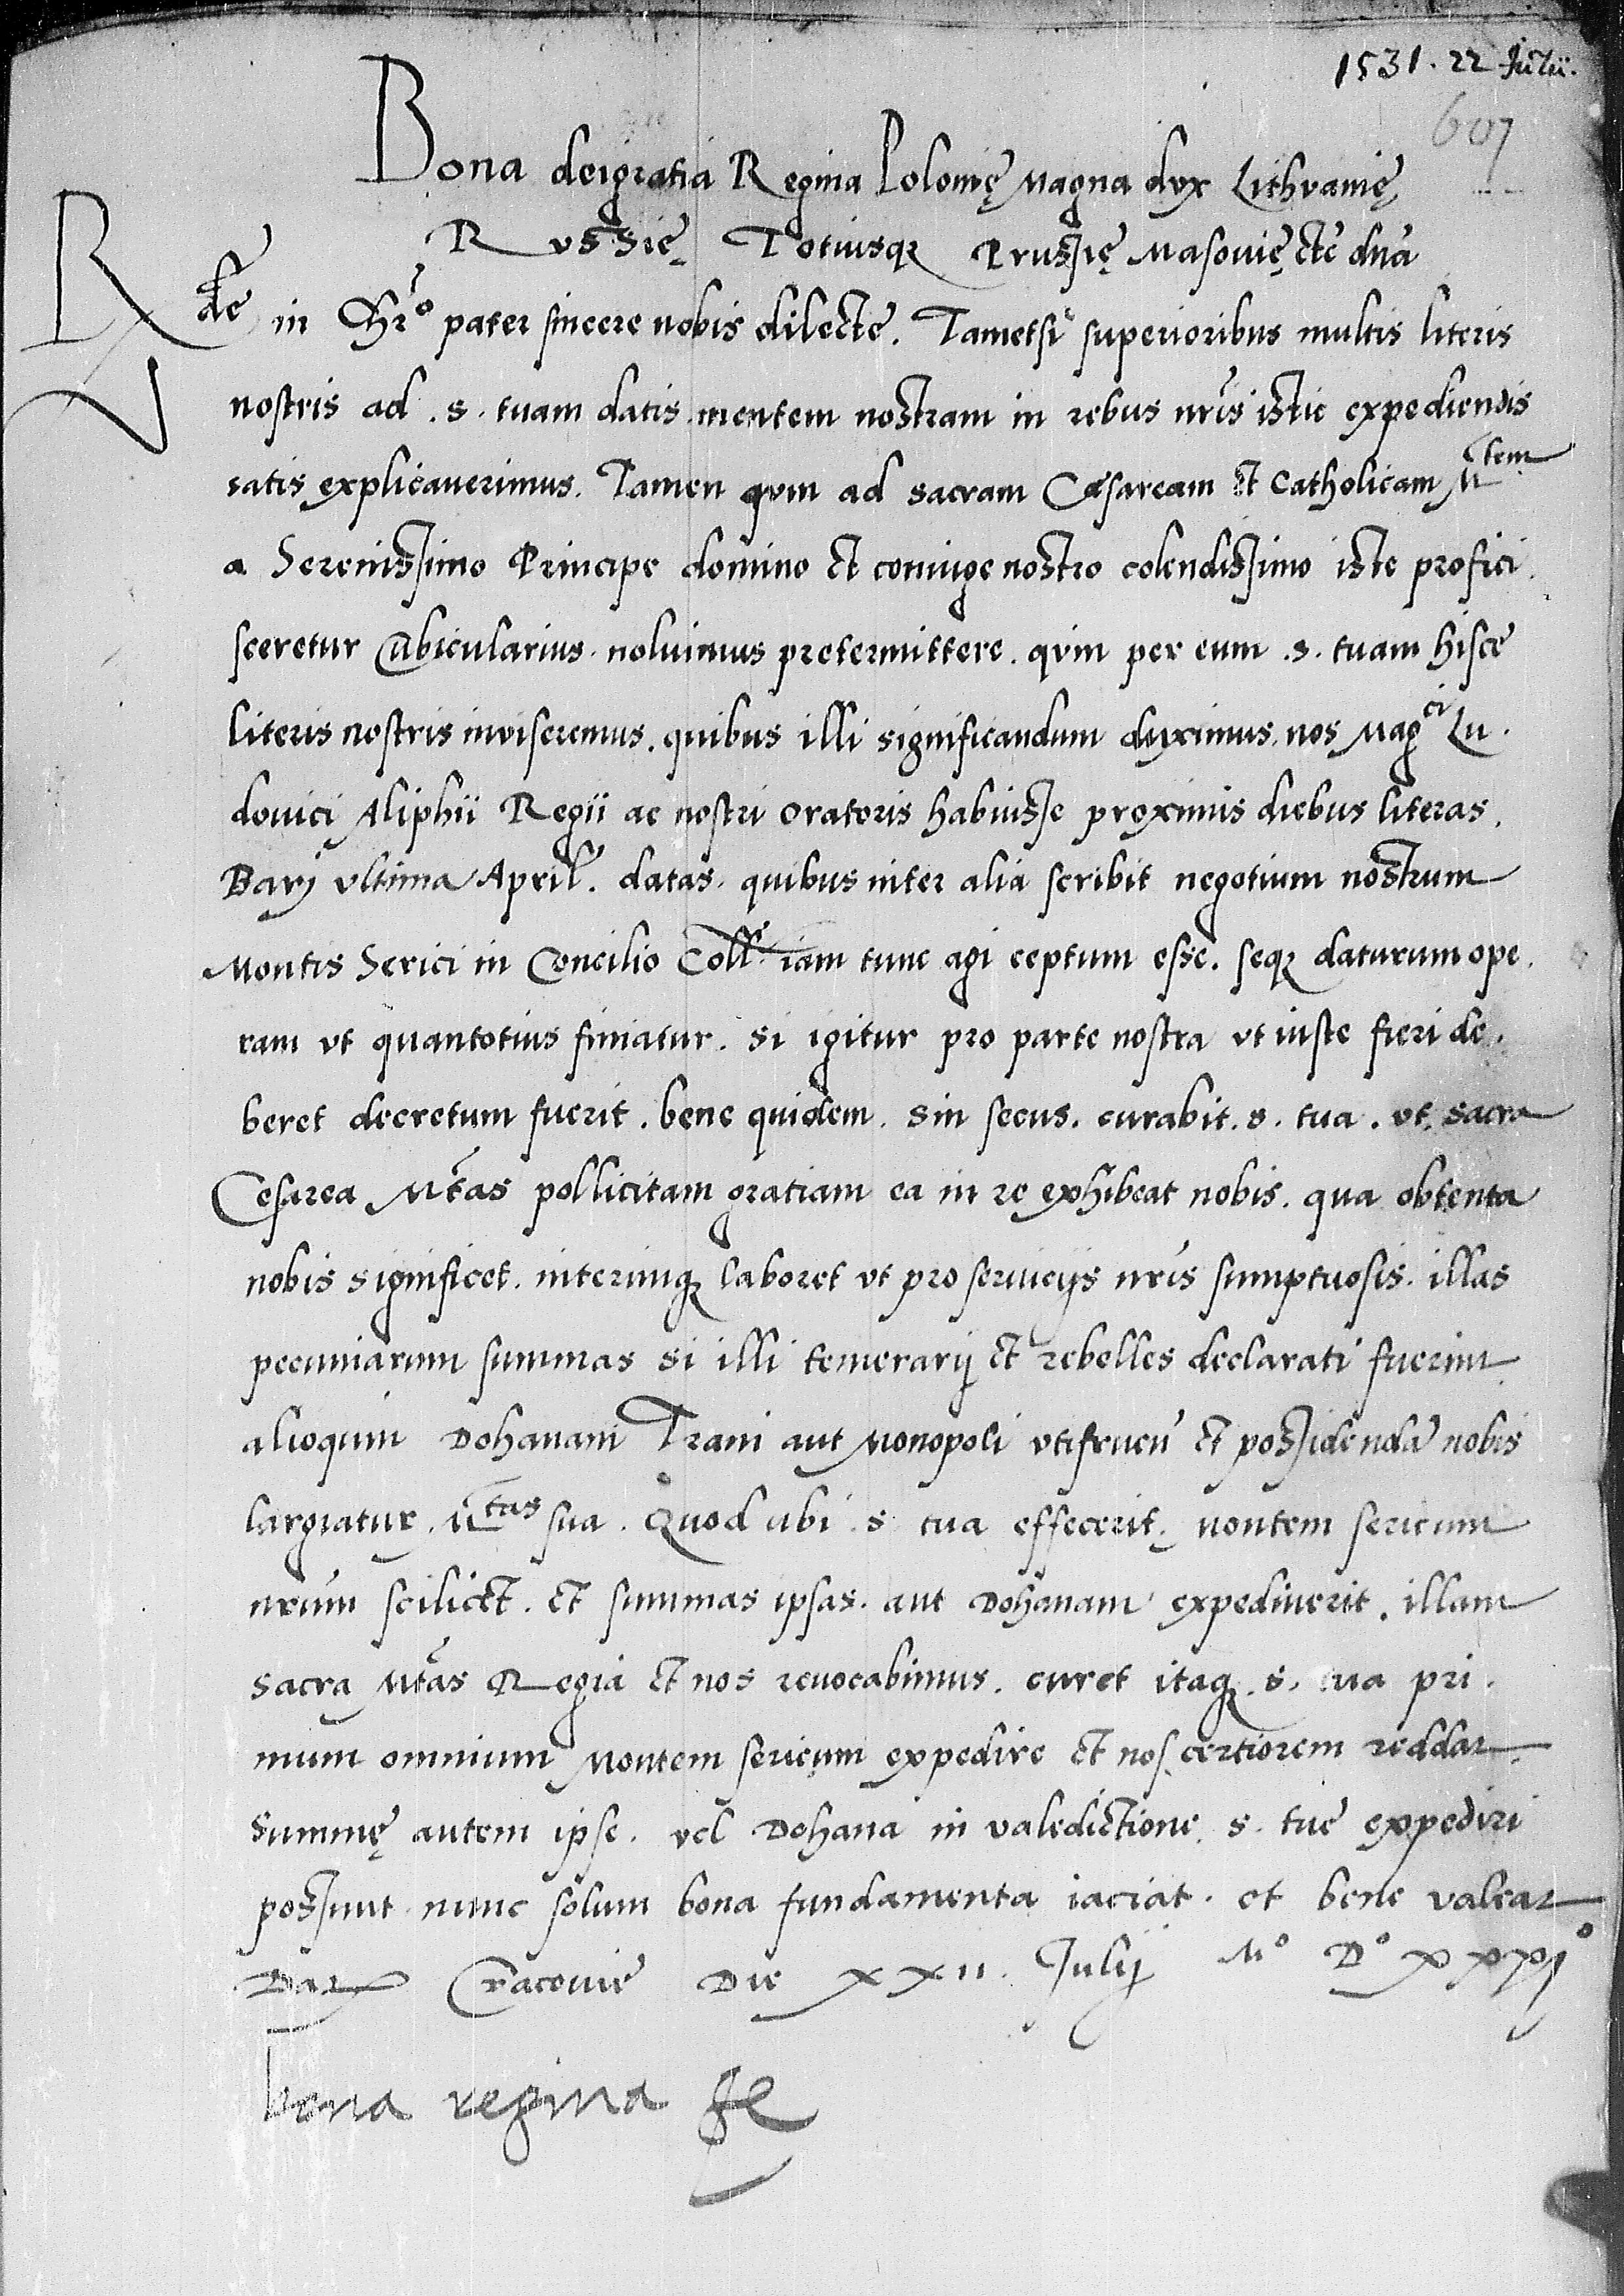 1531. 22 Julii.
607
Bona deigratia Regina Polonię Magna dvx Lithvanię
Rvssię Totiusqꝫ Prussię Masouię etc̄ dn̄a
Rde in Chr̄o pater sincere nobis dilecte. Tametsi superioribus multis literis
nostris ad .s. tuam datis mentem nostram in rebus nr̄is istic expediendis
satis explicauerimus. Tamen qvm ad sacram Cæsaream et Catholicam Mtem
a Serenissimo Principe domino et coniuge nostro colendissimo iste profici.
sceretur Cubicularius. noluimus pretermittere. qvin per eum .s. tuam hisce
literis nostris inviseremus. quibus illi significandum duximus, nos Magci Lu.
douici Aliphii Regii ac nostri oratoris habuisse proximis diebus literas.
Barj vltima April. datas. quibus inter alia scribit negotium nostrum
Montis Serici in Concilio Coll. iam tunc agi ceptum esse. seqꝫ daturum ope.
ram vt quantotius finiatur. si igitur pro parte nostra vt iuste fieri de.
beret decretum fuerit. bene quidem. sin secus. curabit. s. tua. vt. sacra
Cesarea Mtās pollicitam gratiam ea in re exhibeat nobis. qua obtenta
nobis significet. interimqꝫ laboret vt pro seruicijs nr̄is sumptuosis. illas
pecuniarum summas si illi temerarij et rebelles declarati fuerint
alioquin Dohanam Trani aut Monopoli vtifruen̄ et possidendā nobis
largiatur. Mtas sua. Quod ubi .s. tua effecerit. montem sericum
nr̄um scilicet. et summas ipsas. aut Dohanam expediuerit. illam
sacra Mtās Regia et nos reuocabimus. curet itaqꝫ. s. tua pri.
mum omnium Montem sericum expedire et nos certiorem reddat
Summę autem ipse. vel Dohana in valedictione. s. tue expediri
possunt. nunc solum bona fundamenta iaciat. et bene valeat
Dat Cracouie Die xxii. Julij Mº Dº xxxjº
bona regina